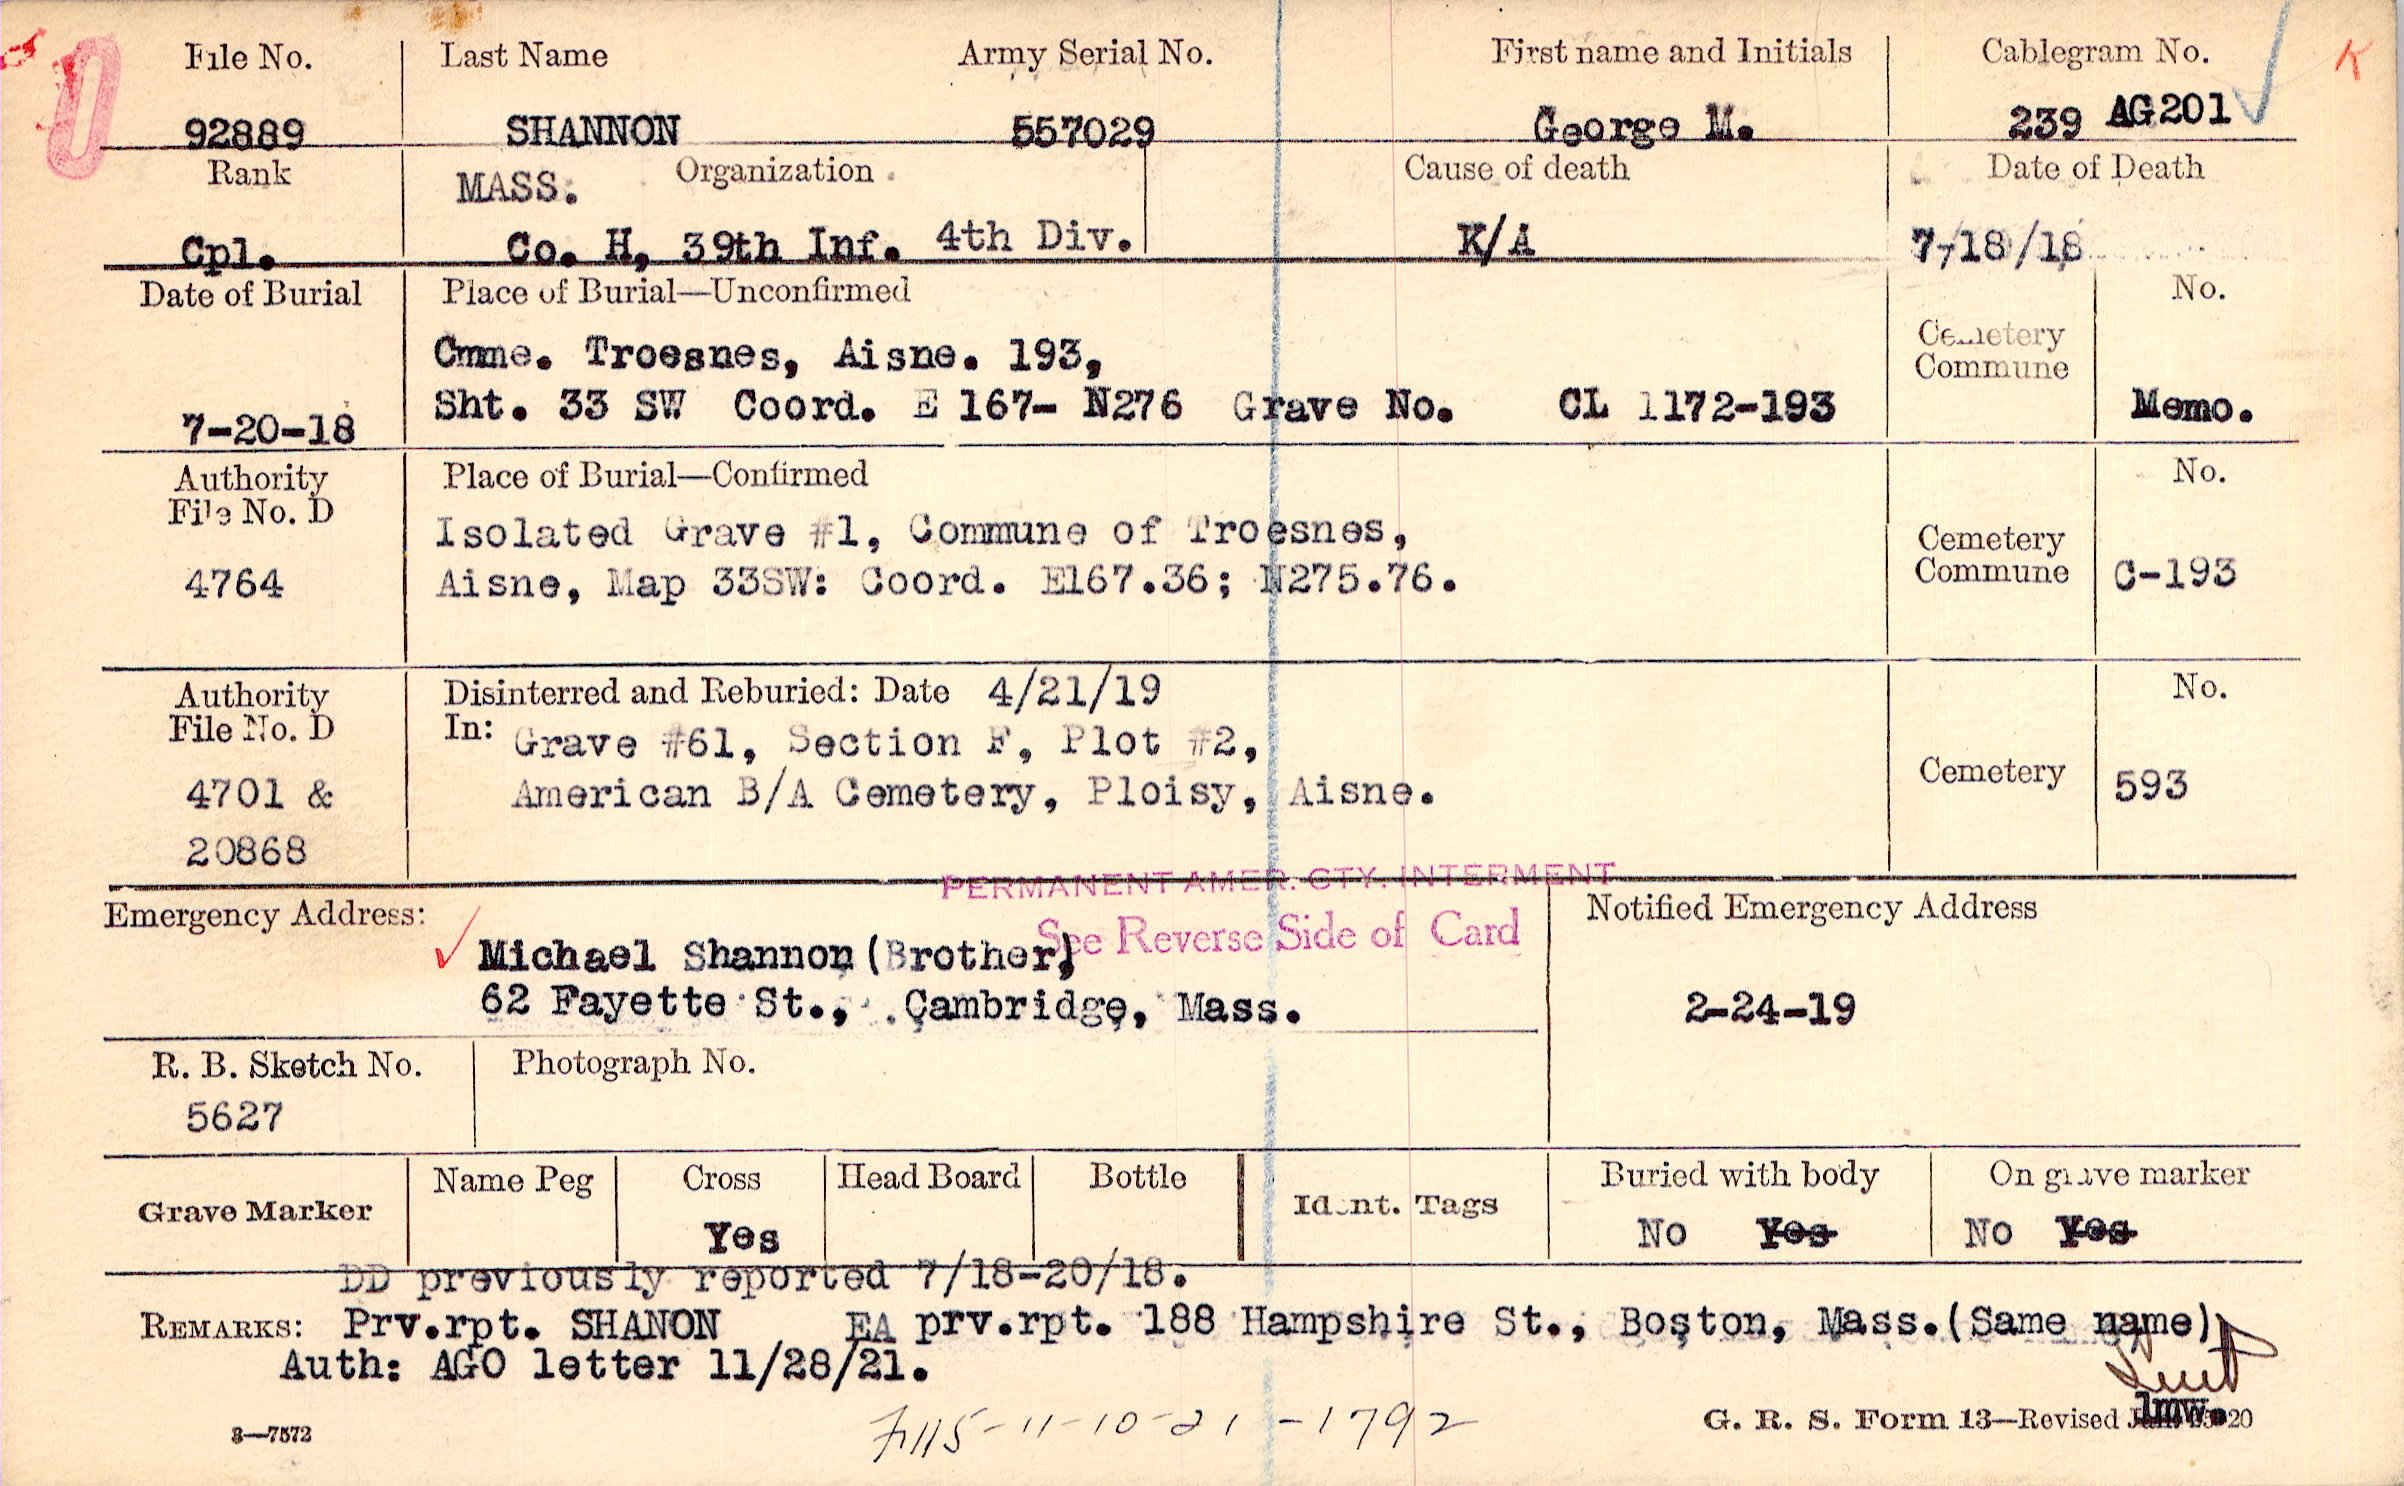 File No. Last Name Army Serial No. First name and Initials Cablegram No. K
92889 SHANNON 557029 George M. 239 AG201
Rank MASS. Organization Cause of death Date of Death
Cpl. Co. H, 39th Inf. 4th Div. K/A 7-18/18
Date of Burial Place of Burial—Unconfirmed No.
Cmne. Troesnes, Aisne. 193, Cemetery
Commune
7-20-18 Sht. 33 SW Coord. E 167- N276 Grave No. CL 1172-193 Memo.
Authority Place of Burial—Confirmed No.
File No. D
Isolated Grave #1, Commune of Troesnes, Cemetery
4764 Aisne, Map 33SW: Coord. E167.36; N275.76. Commune C-193
Authority Disinterred and Reburied: Date 4/21/19 No.
File No. D In: Grave #61, Section F, Plot #2,
4701 & American B/A Cemetery, Ploisy, Aisne. Cemetery 593
20868
PERMANENT AMER. CTY. INTERMENT
Emergency Address: See Reverse Side of Card Notified Emergency Address
Michael Shannon (Brother)
62 Fayette St., Cambridge, Mass. 2-24-19
R. B. Sketch No. Photograph No.
5627
Grave Marker Name Peg Cross Head Board Bottle Ident. Tags Buried with body On grave marker
Yes No Yes No Yes
DD previously reported 7/18-20/18.
REMARKS: Prv.rpt. SHANON EA prv.rpt. 188 Hampshire St., Boston, Mass.(Same name)
Auth: AGO letter 11/28/21.
lmw.
3—7572 -11-10-21-1792 G. R. S. Form 13—Revised 20